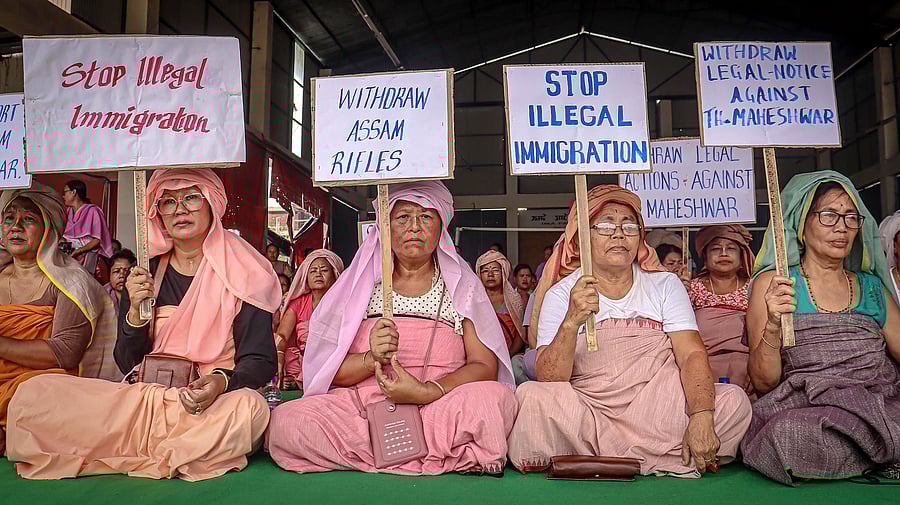 ORT
M
AR.
Stop Illegal
Immigration
WITHDRAW
ASSAM
RIFLES
STOP
ILLEGAL
IMMIGRATION
DRAW LEGAL
ACTIONS AGAINST
MAHESHWAR
WITHDRAW
LEGAL-NOTICE
AGAINST
TH. MAHESHWAR